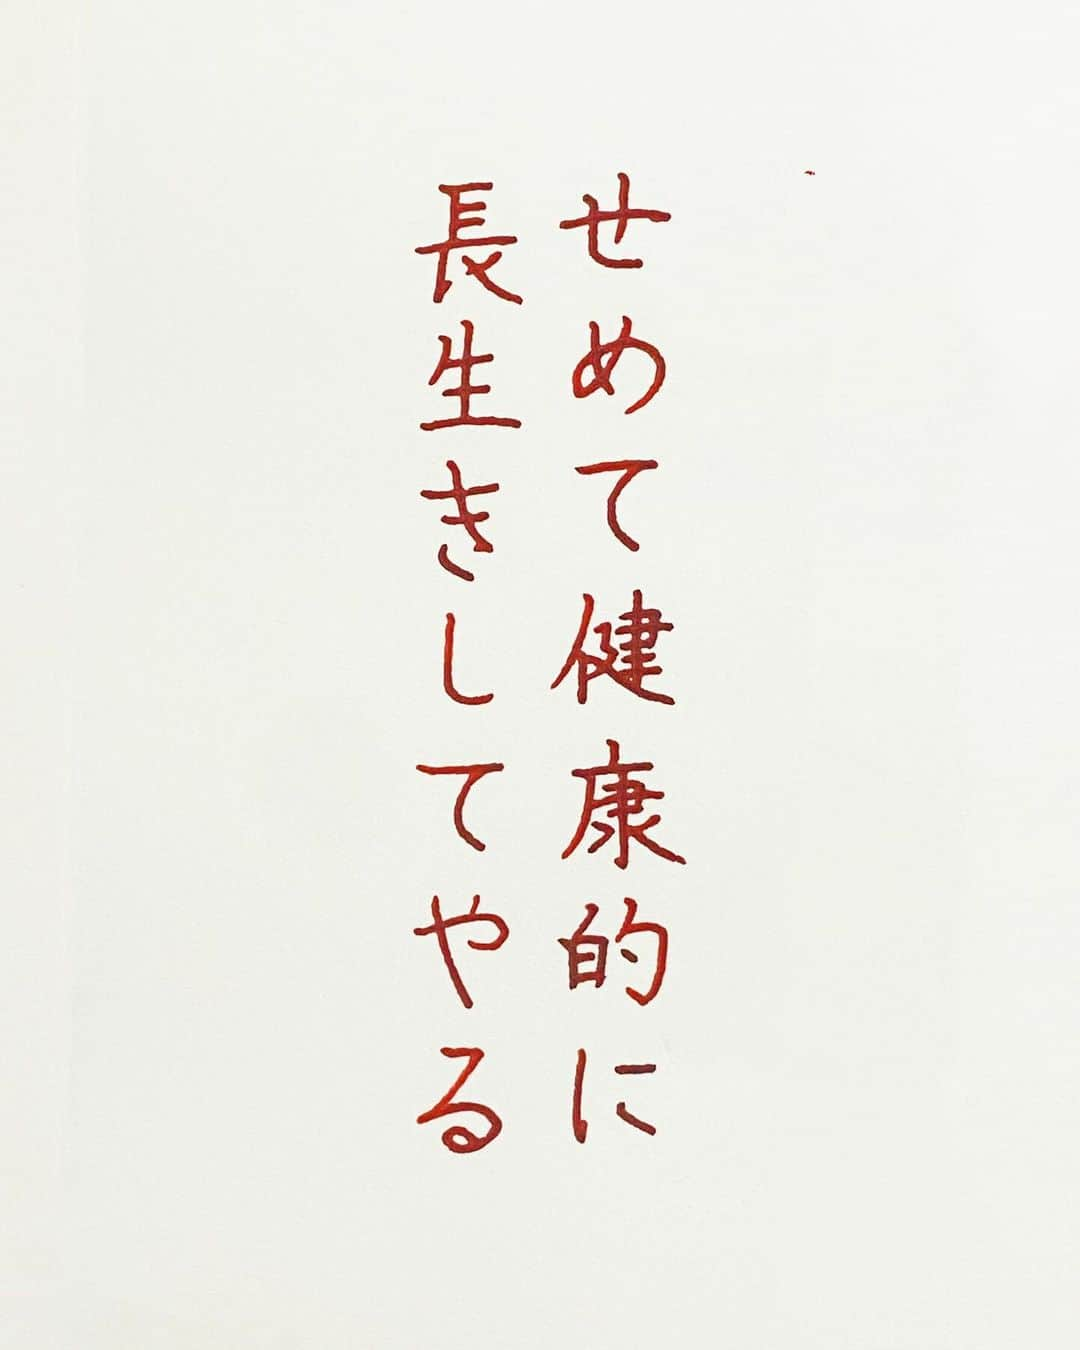 せめて健康的に
長生きしてやる